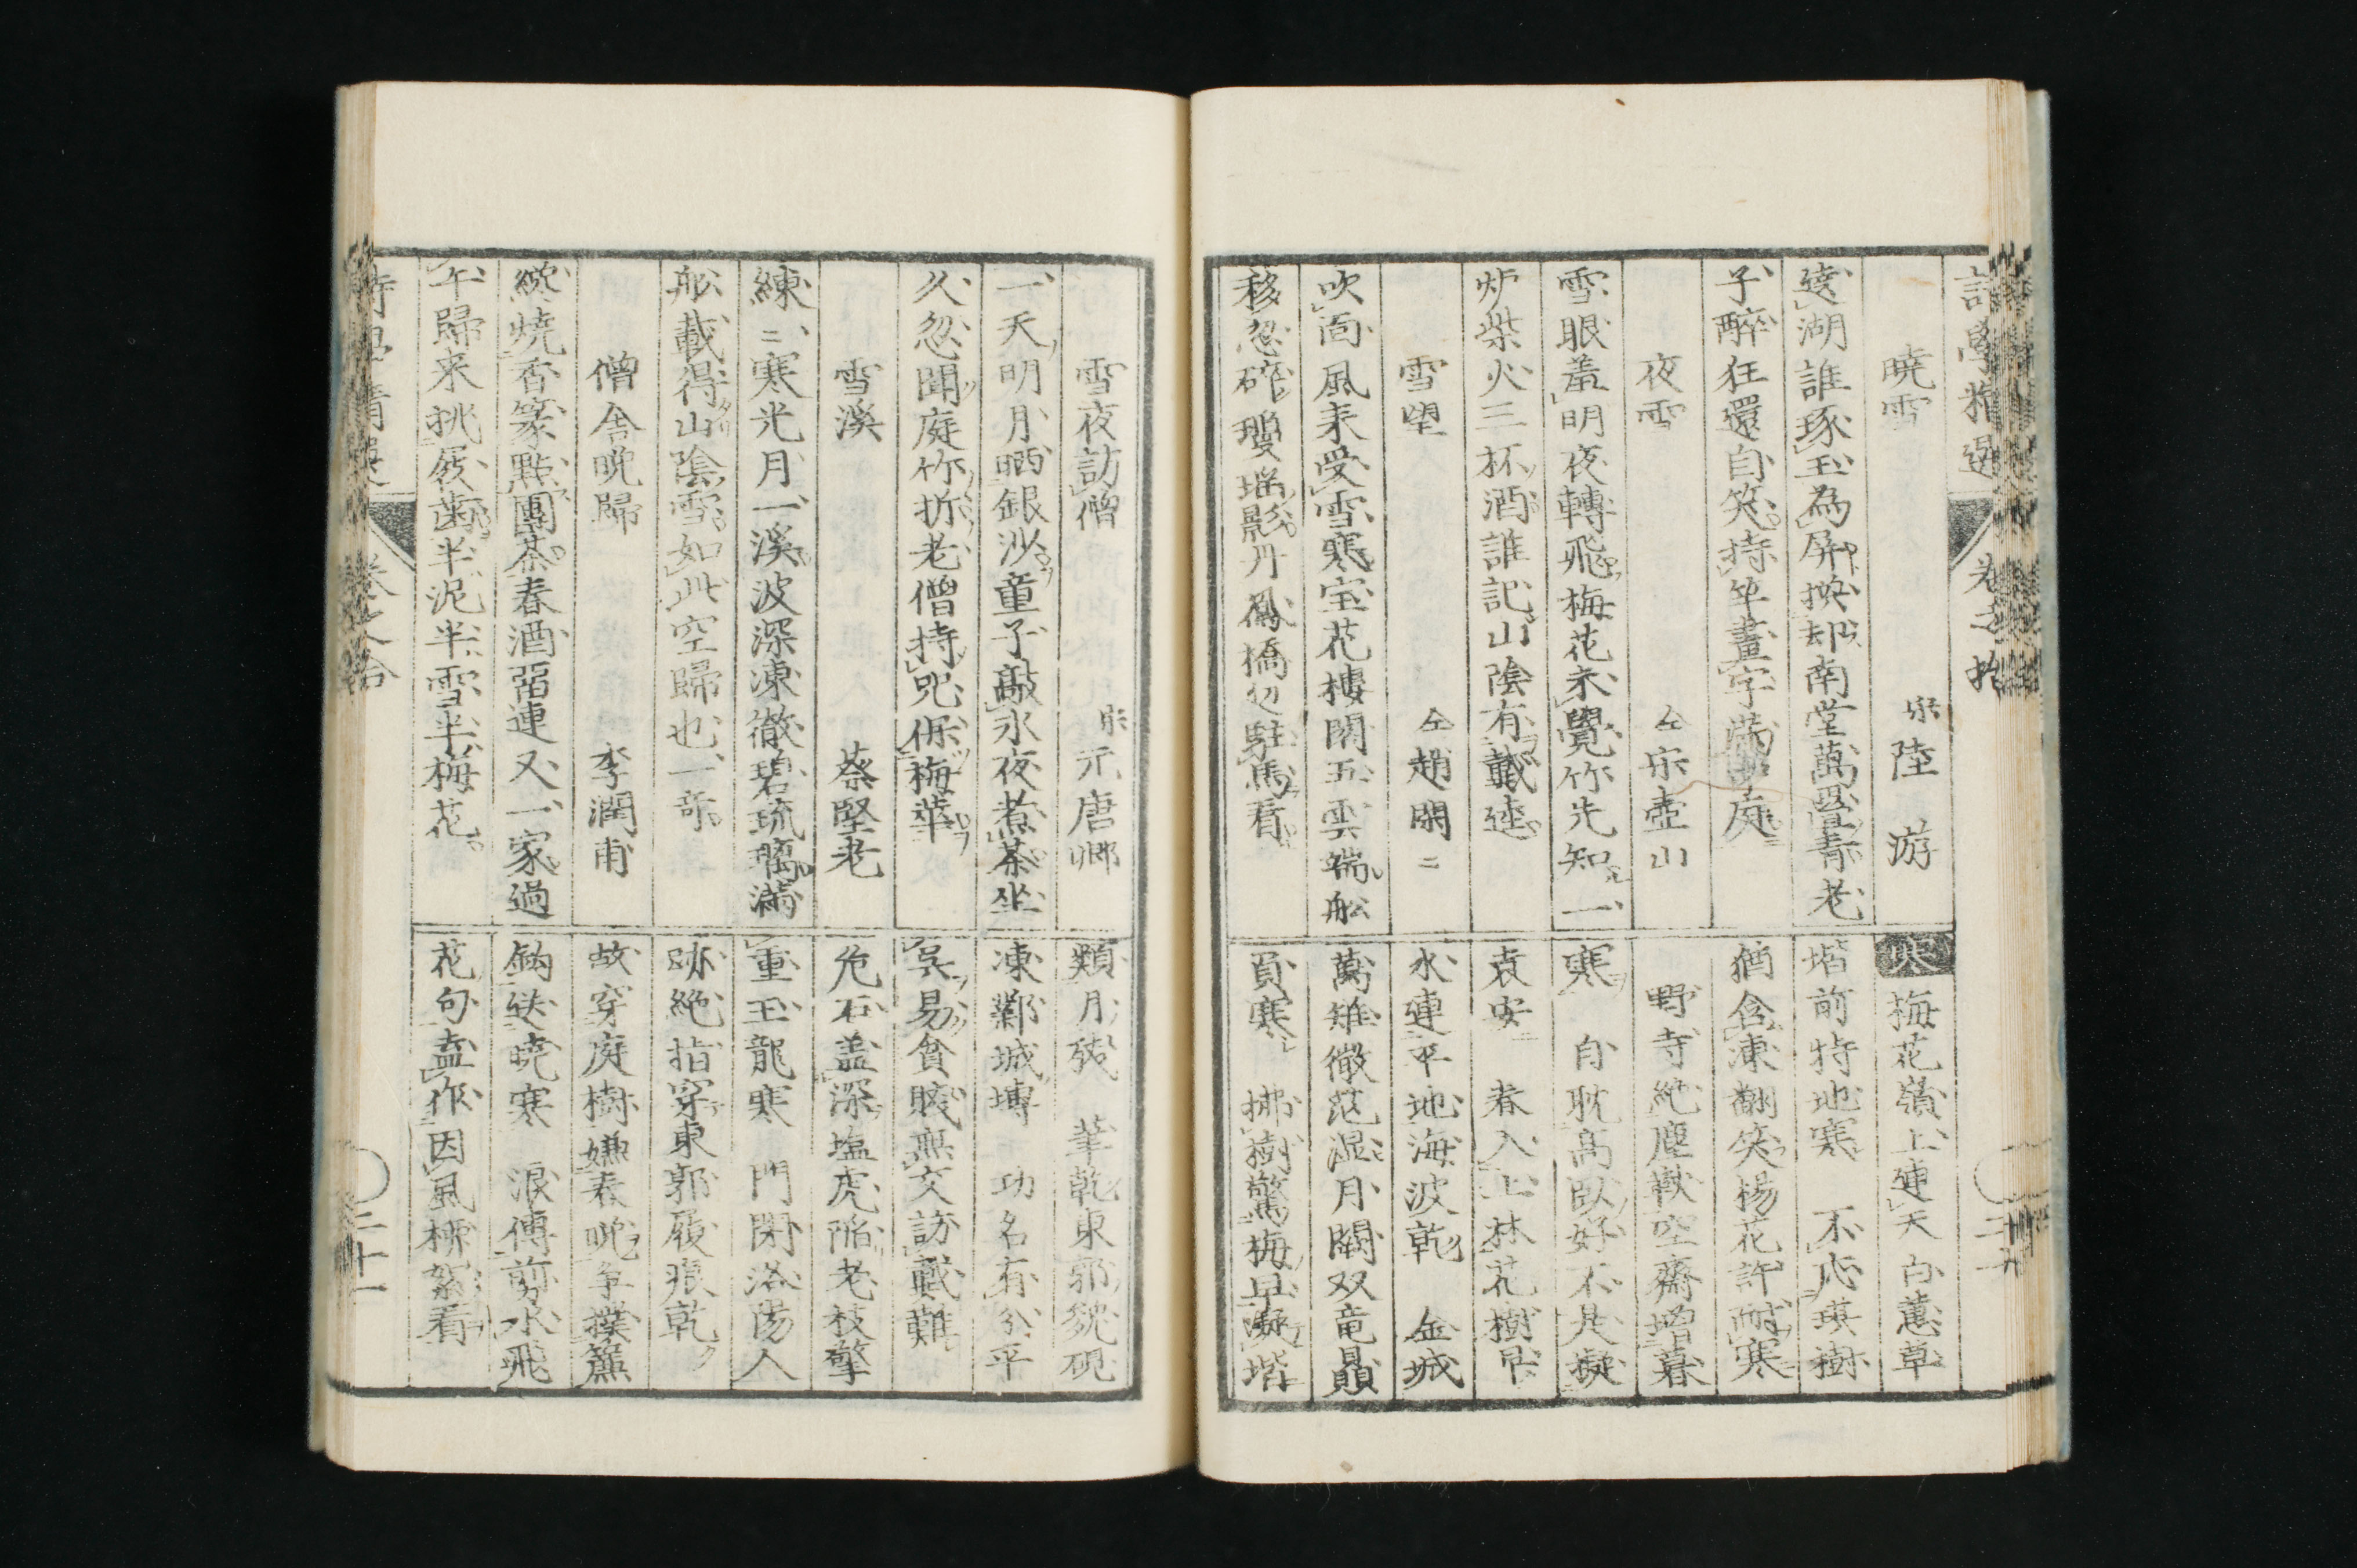 暁雪
宋 陸游
遶湖誰琢玉為屏換却南堂萬疊青老
子醉狂還自笑持竿畫字滿中庭
夜雪
仝 宋壺山
雪眼羞明夜轉飛梅花未覺竹先知一
炉柴火三杯酒誰記山陰有戴逵
雪望
仝 趙閑二
吹面風来受雪寒宝花樓閣五雲端舩
移忽碎瓊瑶影丹鳳橋辺駐馬看
寒 梅花嶺上連天白蕙草
堦前特地寒 不応琪樹
猶含凍翻笑楊花許耐寒
野寺絶塵獣空齋増暮
寒 自耽高臥好不是擬
袁安 春入上林花樹
氷連平地海波乾 金城
萬雉微茫湿月闕双竜贔
屓寒 拂樹驚梅早凝堦
雪夜訪僧
宋元 唐卿
一天明月晒銀沙童子敲氷夜煮茶坐
久忽聞庭竹折老僧持咒保梅華
雪溪
蔡堅老
練二寒光月一溪波深凍徹碧琉璃滿
舩載得山陰雪如此空歸也一奇
僧舎晩歸
李潤甫
纔燒香篆點團茶春酒留連又一家過
午歸来挑屐歯半泥半雪半梅花
類月殘 筆乾東郭皃硯
凍鄴城塼 功名有分平
呉易貧賤無交訪戴難
危石盖深塩虎陥老枝擎
重玉龍寒 門閉洛陽人
跡絶指穿東郭履痕乾
故穿庭樹嫌春晩争撲簾
鈎送暁寒 浪傳剪水飛
花句盍作因風柳絮看
詩學精選 卷之拾
三十一